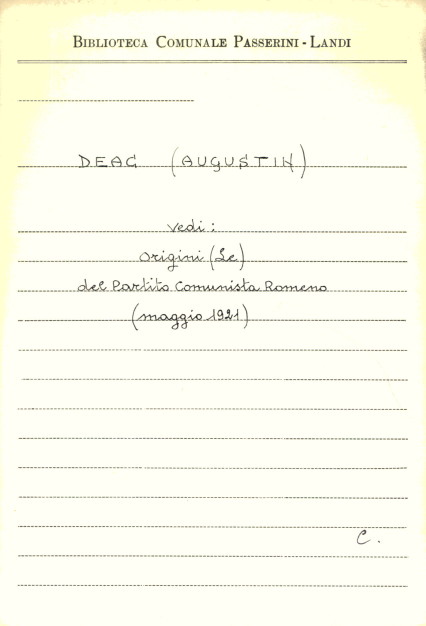 BIBLIOTECA COMUNALE PASSERINI - LANDI
DEAC (AUGUSTIN)
vedi:
Origini (Le)
del Partito Comunista Romeno
(maggio 1921)
C.